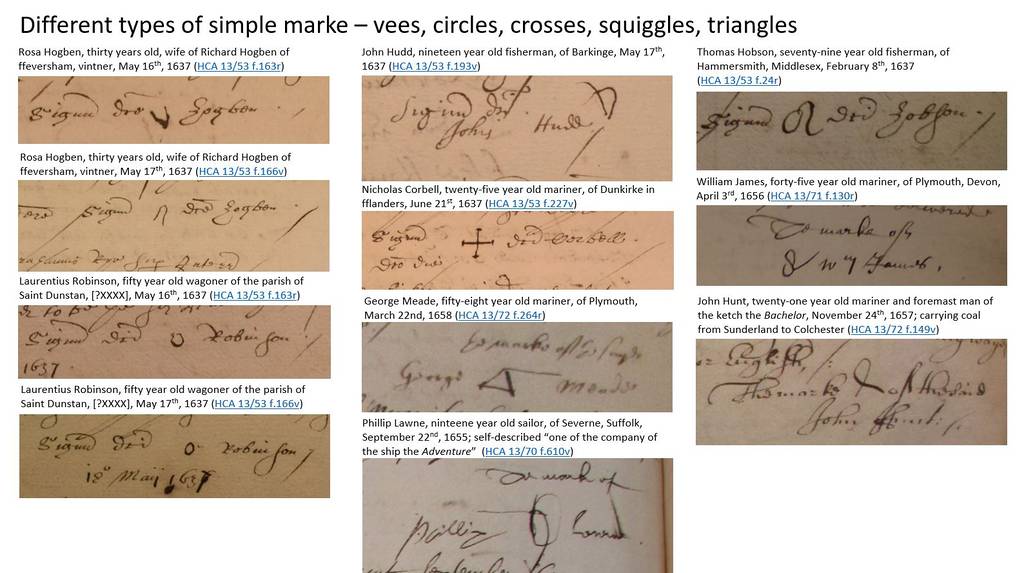 Different types of simple marke – vees, circles, crosses, squiggles, triangles
Rosa Hogben, thirty years old, wife of Richard Hogben of
ffeversham, vintner, May 16th, 1637 (HCA 13/53 f.163r)
Signu dce Hogben
Rosa Hogben, thirty years old, wife of Richard Hogben of
ffeversham, vintner, May 17th, 1637 (HCA 13/53 f.166v)
Signu dce Hogben
Laurentius Robinson, fifty year old wagoner of the parish of
Saint Dunstan, [?XXXX], May 16th, 1637 (HCA 13/53 f.163r)
Signu dci Robinson
1637.
Laurentius Robinson, fifty year old wagoner of the parish of
Saint Dunstan, [?XXXX], May 17th, 1637 (HCA 13/53 f.166v)
Signu dci Robinson
18o Maij 1637
John Hudd, nineteen year old fisherman, of Barkinge, May 17th,
1637 (HCA 13/53 f.193v)
Signu dci
John Hudd
Nicholas Corbell, twenty-five year old mariner, of Dunkirke in
fflanders, June 21st, 1637 (HCA 13/53 f.227v)
Signu dci Corbell
George Meade, fifty-eight year old mariner, of Plymouth,
March 22nd, 1658 (HCA 13/72 f.264r)
George Meade
Phillip Lawne, ninteene year old sailor, of Severne, Suffolk,
September 22nd, 1655; self-described “one of the company of
the ship the Adventure” (HCA 13/70 f.610v)
marke of
Phillip Lawne
Thomas Hobson, seventy-nine year old fisherman, of
Hammersmith, Middlesex, February 8th, 1637
(HCA 13/53 f.24r)
Signu dci Hobson
William James, forty-five year old mariner, of Plymouth, Devon,
April 3rd, 1656 (HCA 13/71 f.130r)
marke of
Wm James.
John Hunt, twenty-one year old mariner and foremast man of
the ketch the Bachelor, November 24th, 1657; carrying coal
from Sunderland to Colchester (HCA 13/72 f.149v)
English,
The marke of the said
John Hunt